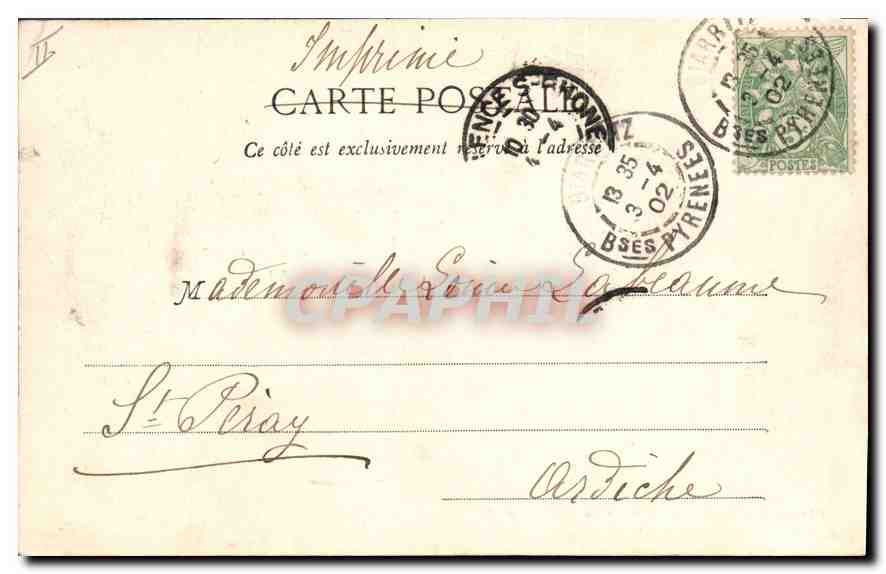 II
Imprimé
CARTE POSTALE
Ce côté est exclusivement réservé à l'adresse
ENCE S-RHONE
10 30
4
BIARRITZ
13 35
3 -4
02
BSES PYRENEES
BIARRITZ
13 35
3 -4
02
BSES PYRENEES
POSTES
Mademoiselle Labeaume
CPAPHIL
St Péray
Ardèche